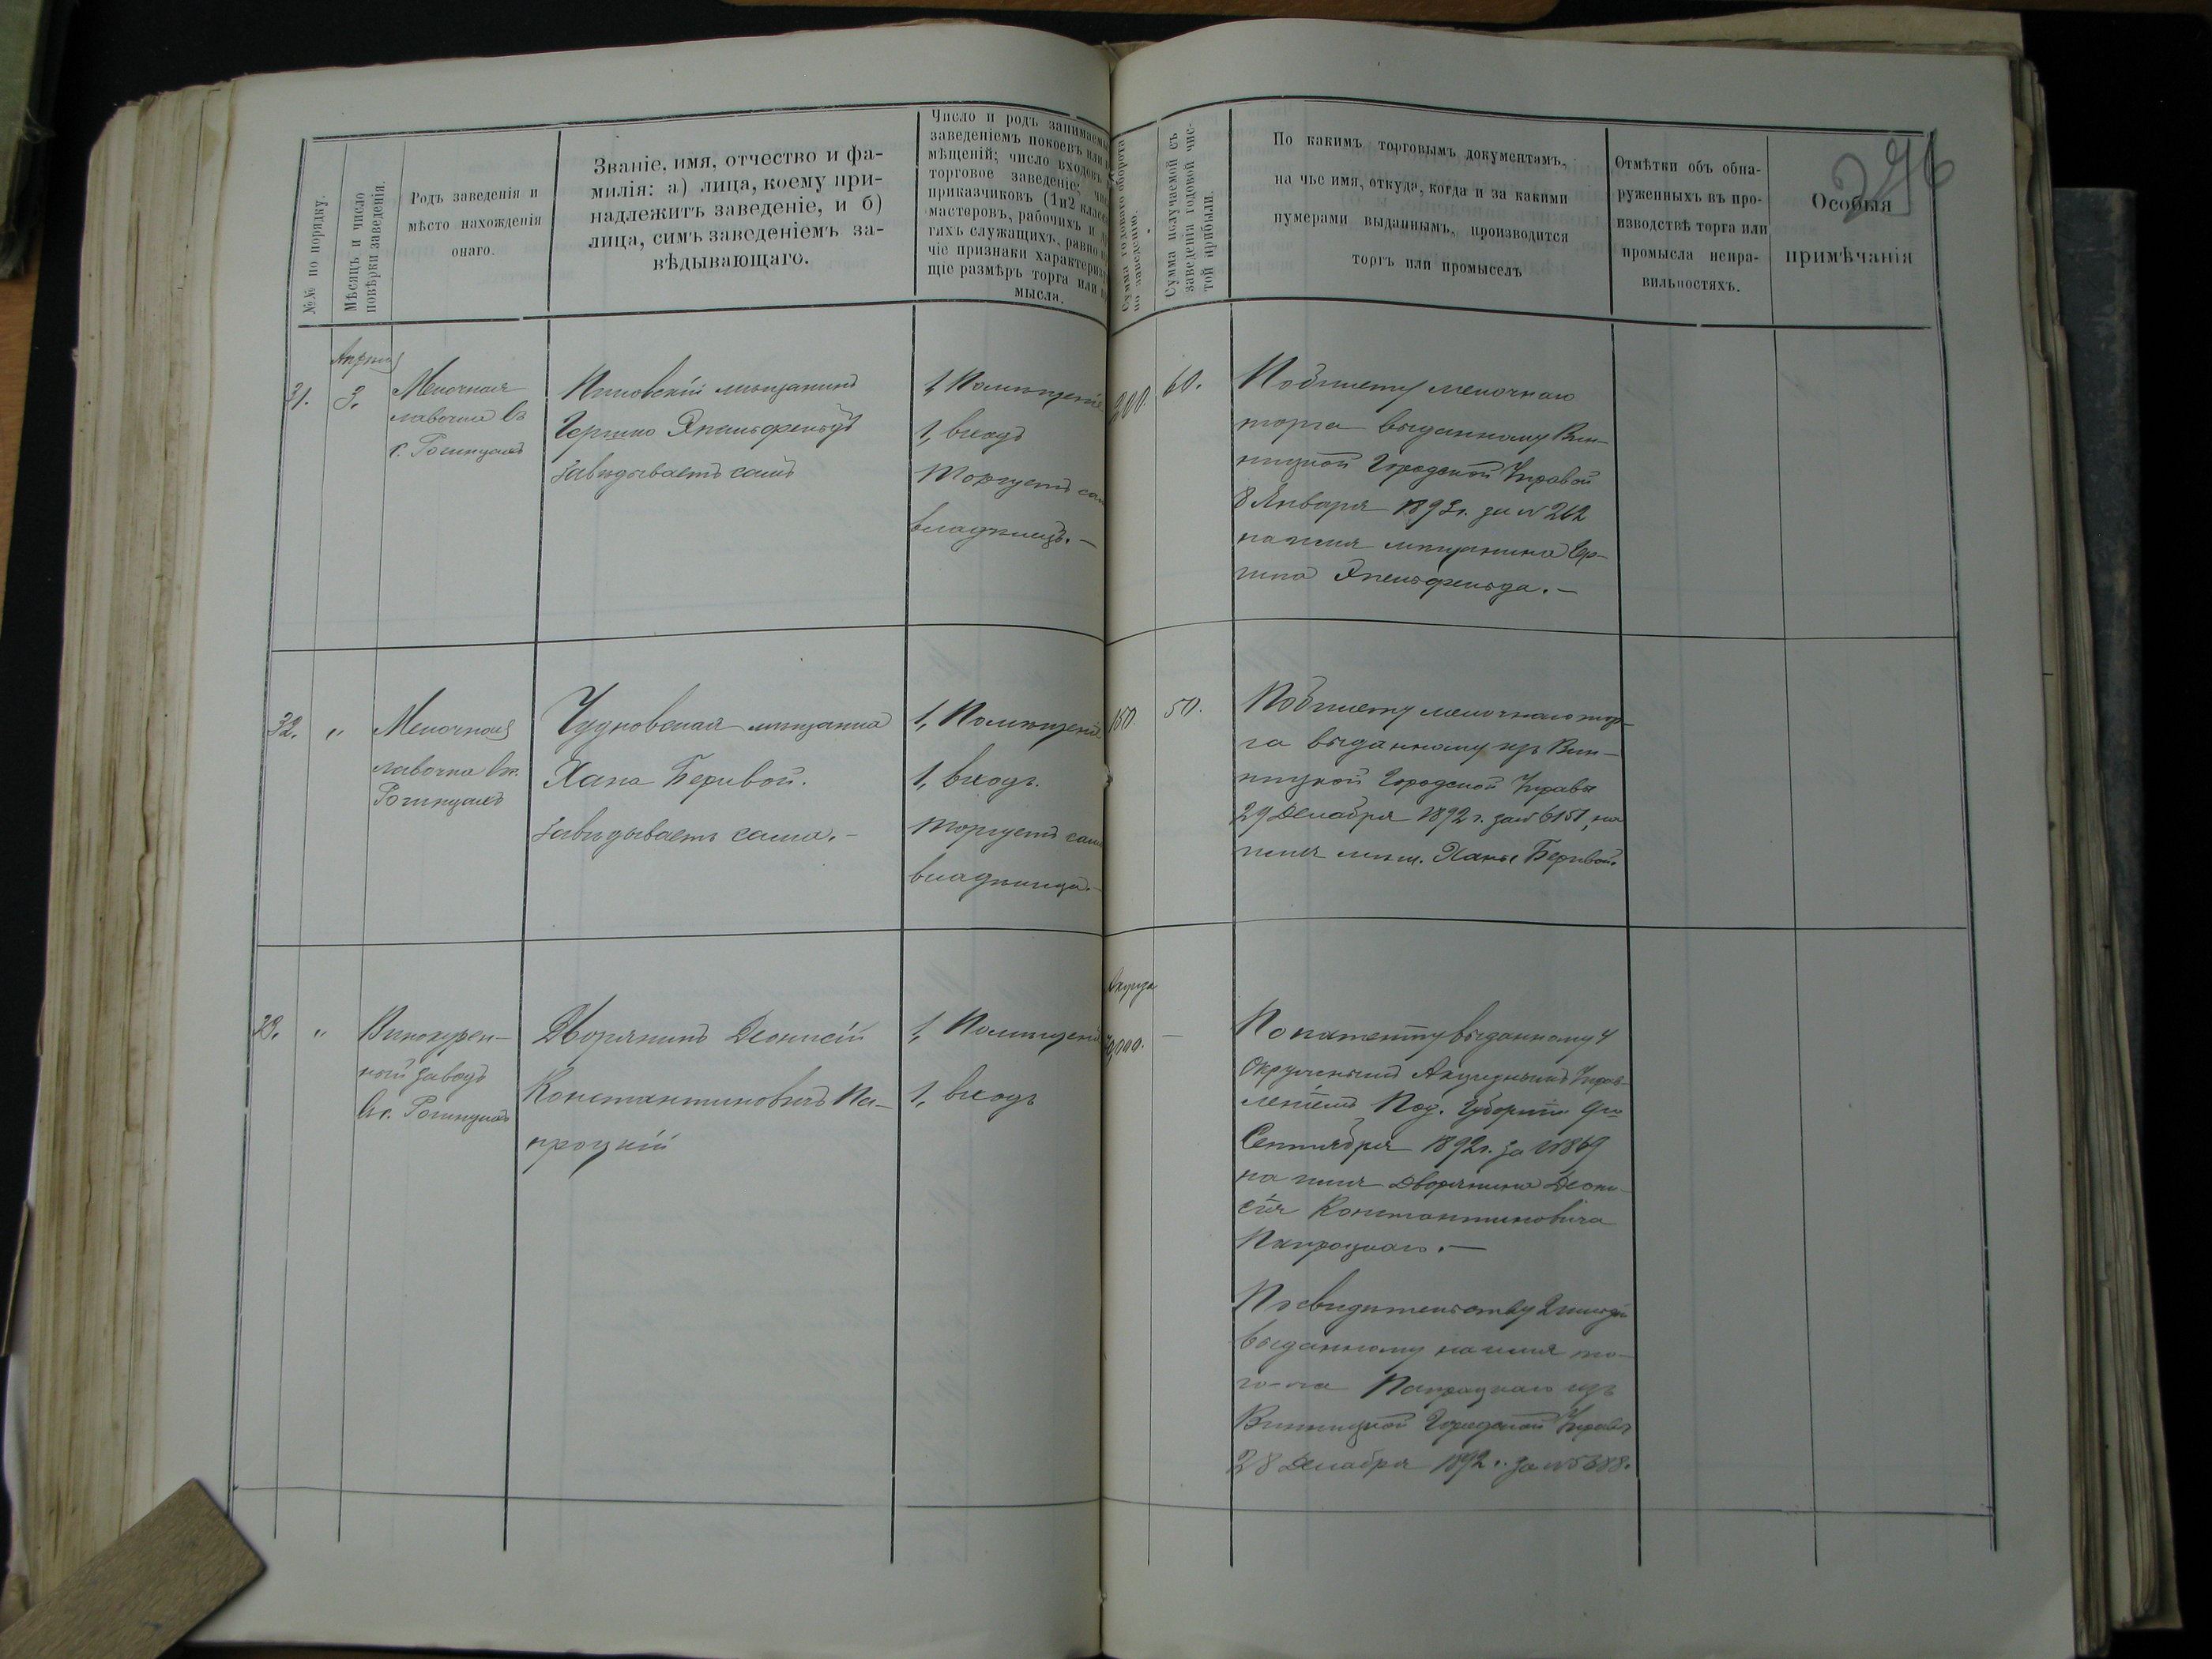 246
№№ по порядку.
Мѣсяцъ и число
повѣрки заведенія.
Родъ заведенія и
мѣсто нахожденія
онаго.
Званіе, имя, отчество и фа-
милія: а) лица, коему при-
надлежитъ заведеніе, и б)
лица, симъ заведеніемъ за-
вѣдывающаго.
Число и родъ занимаемы
заведеніемъ покоевъ или
мѣщеній; число входовъ
торговое заведеніе; чис
приказчиковъ (1 и 2 класс
мастеровъ, рабочихъ и
гихъ служащихъ, равно
чіе признаки характериз
щіе размѣръ торга или
мысла.
Сумма годоваго оборота
по заведенію.
Сумма получаемой съ
заведенія годовой чис-
той прибыли.
По какимъ торговымъ документамъ,
на чье имя, откуда, когда и за какими
нумерами выданнымъ, производится
торгъ или промыселъ
Отмѣтки объ обна-
руженныхъ въ про-
изводствѣ торга или
промысла непра-
вильностяхъ.
Особыя
примѣчанія
31.
Апрѣля
3.
Мелочная
лавочка въ
с.
мѣщанинъ
завѣдываетъ самъ
1, Помѣщеніе
1, входъ
Торгуетъ сам
владѣлецъ.—
200.
60.
По билету мелочнаго
торга выданному Вин-
ницкой Городской Управой
8 Января 1893г. за №
на имя мѣщанина
32.
"
Мелочная
лавочка въ с.
Чудновская мѣщанка
Хана
завѣдываетъ сама.—
1, Помѣщеніе
1, входъ.
Торгуетъ сама
владѣлица.—
150.
50.
По билету мелочнаго тор-
га выданному изъ Вин-
ницкой Городской Управы
29 Декабря 1892 г. за № 6151, на
имя мѣщ. Ханы
33.
"
Винокурен-
ный заводъ
въ с.
Дворянинъ Деонисій
Константиновичъ Па-
процкій
1, Помѣщеніе
1, входъ
Акциза
—
По патенту выданному 4
Окружнымъ Акцизнымъ Управ-
леніемъ Под. Губерніи
Сентября 1892г. за № 869
на имя Дворянина Деони-
сія Константиновича
Папроцкаго.—
По свидѣтельству 2 гильдіи
выданному на имя то-
го-же Папроцкаго изъ
Винницкой Городской Управы
28 Декабря 1892 г. за №